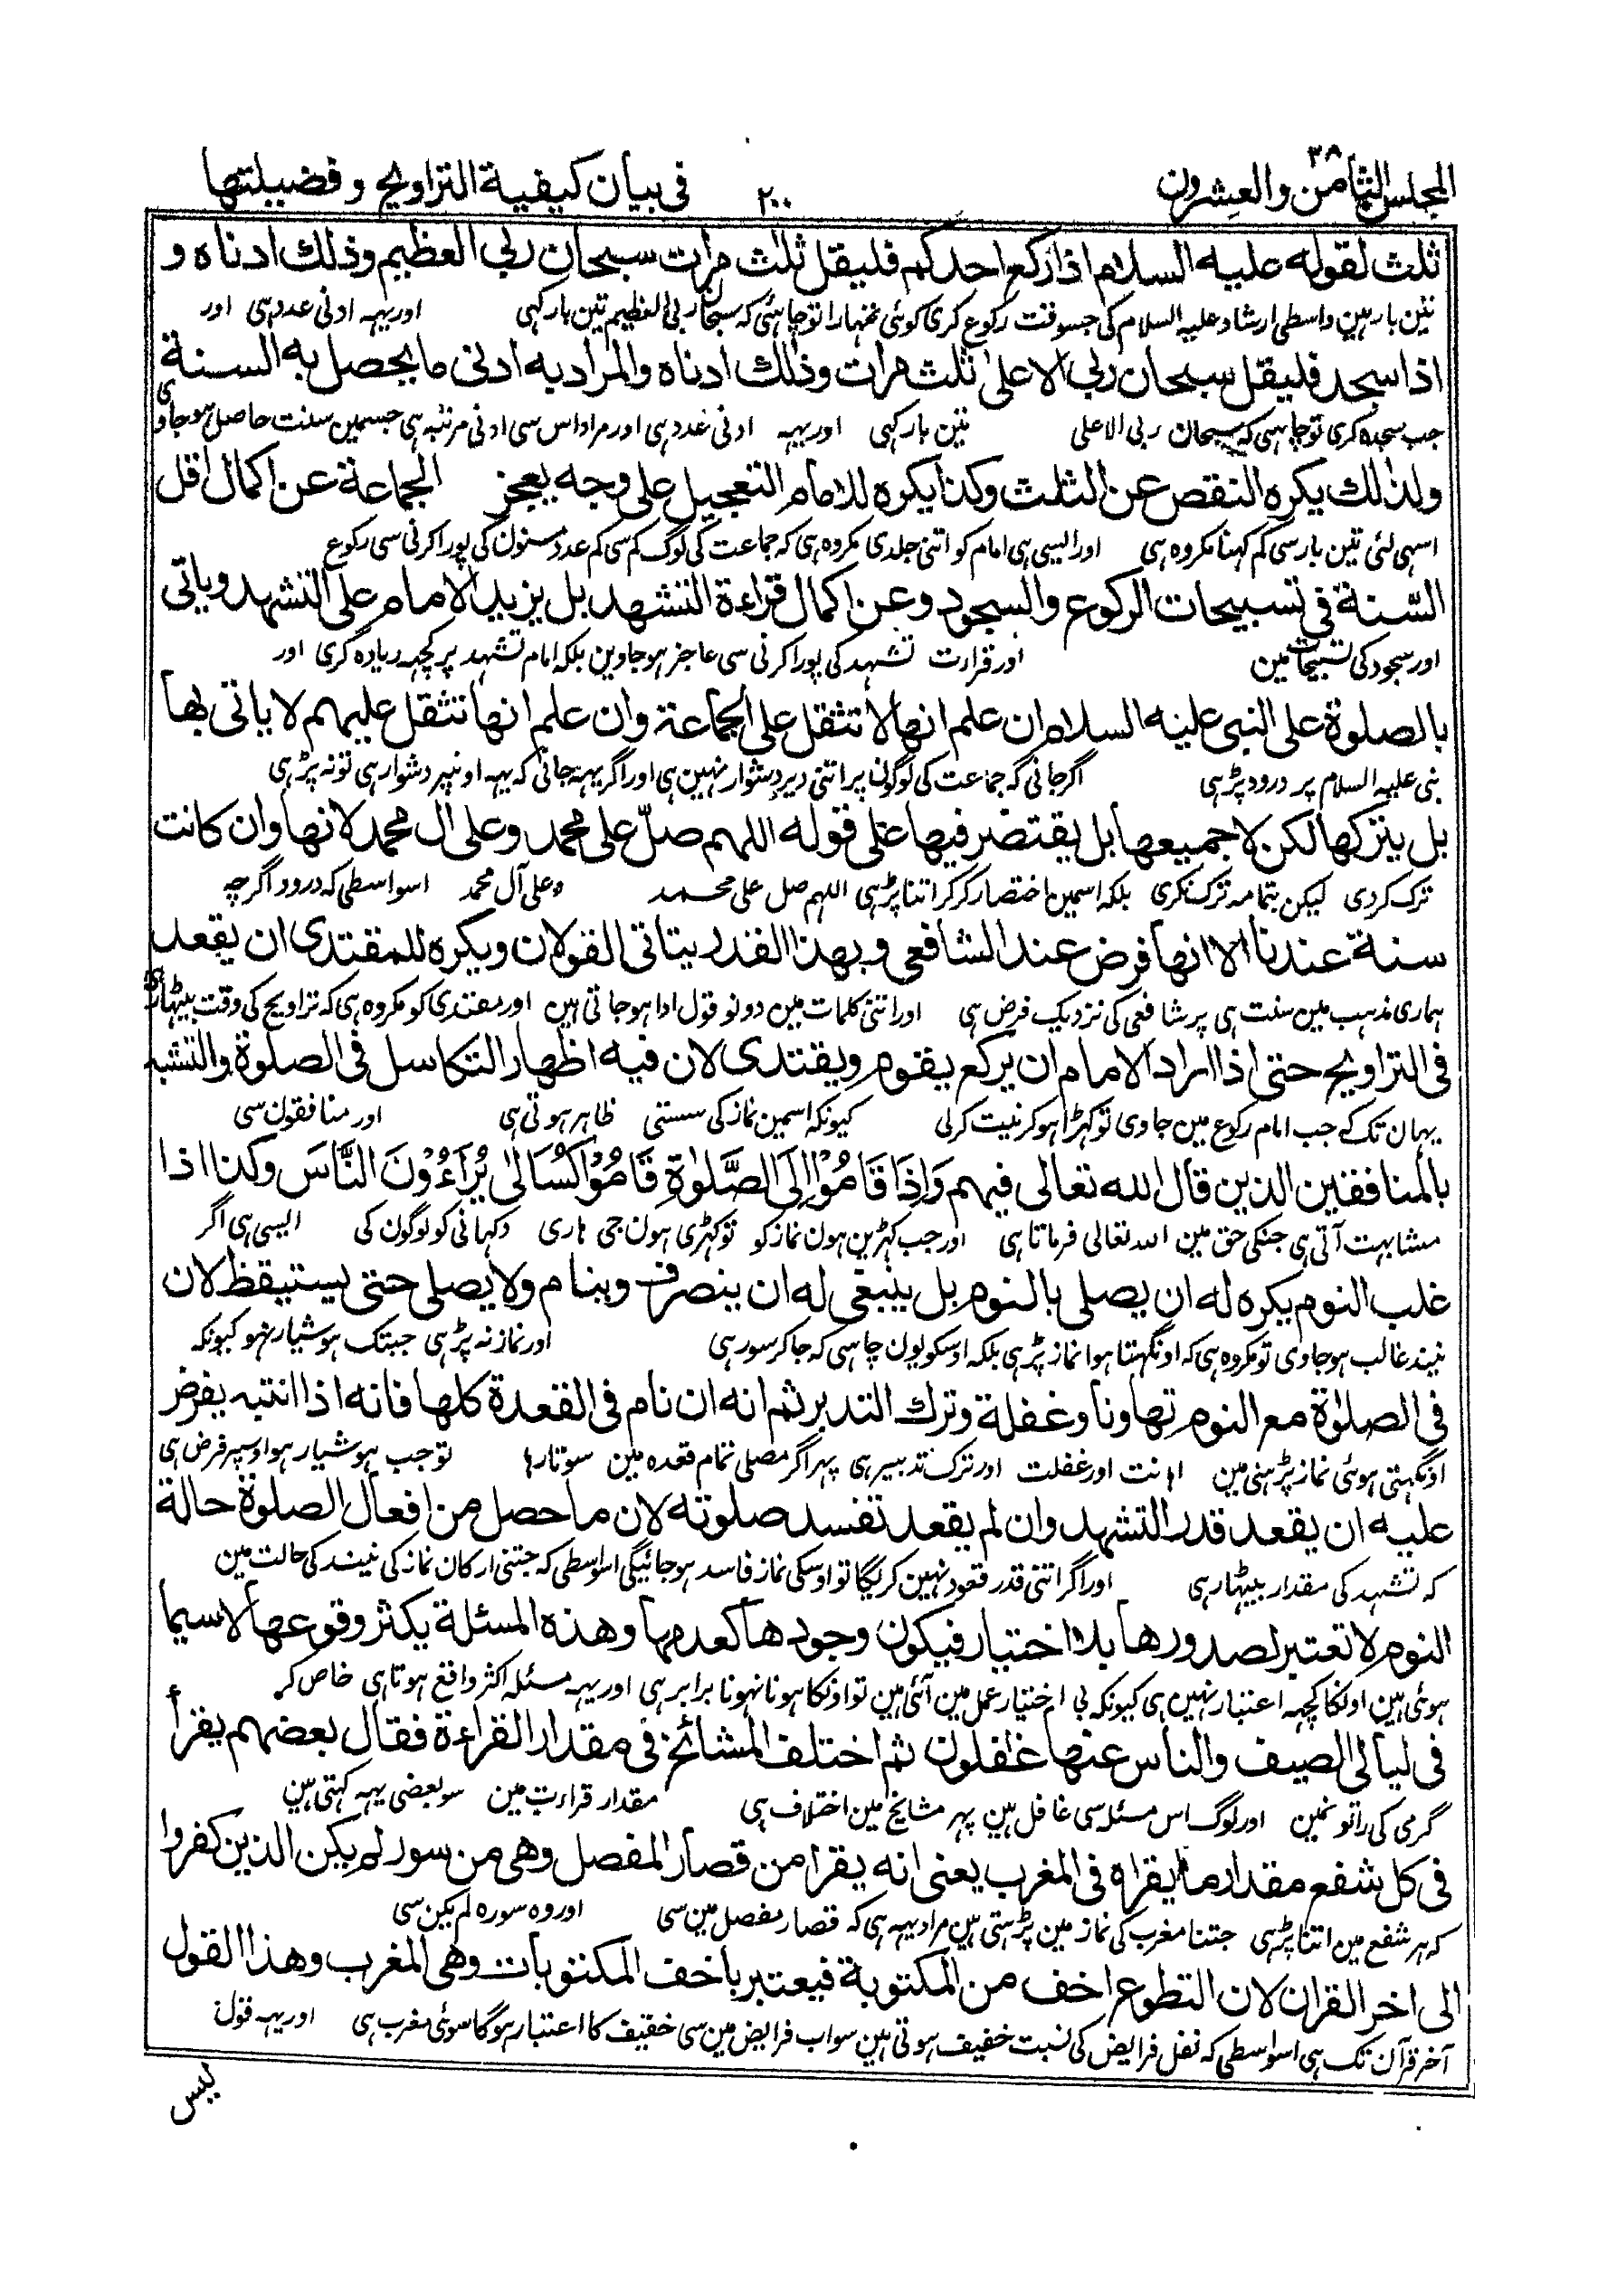 المجلس الثامن والعشرون ٢٨
٢٠٠
فى بيان كيفية التراويح و فضيلتها
ثلث لقوله عليه السلام اذا ركع احدكم فليقل ثلث مرات سبحان ربي العظيم وذلك ادناه و
تین بار ہین واسطی ارشاد علیہ السلام کی جسوقت رکوع کری کوئی تمہارا تو چاہئی کہ سبحان ربی العظیم تین بار کہی اور یہہ ادنی عدد ہی اور
اذا سجد فليقل سبحان ربي الاعلى ثلث مرات وذلك ادناه والمراد به ادنى ما يحصل به السنة
جب سجدہ کری تو چاہئی کہ سبحان ربی الاعلی تین بار کہی اور یہہ ادنی عدد ہی اور مراد اس سی ادنی مرتبہ ہی جسمین سنت حاصل ہو جاوی
ولذلك يكره النقص عن الثلث وكذا يكره للامام التعجيل على وجه يعجز الجماعة عن اكمال اقل
اسہی لئی تین بار سی کم کہنا مکروہ ہی اور ایسی ہی امام کو اتنی جلدی مکروہ ہی کہ جماعت کی لوگ کم سی کم عدد مسنون کی پورا کرنی سی رکوع
السّنة فى تسبيحات الركوع والسجود وعن اكمال قراءة التشهد بل يزيد الامام على التشهد وياتى
اور سجود کی تسبیحات مین اور قرارت تشہد کی پورا کرنی سی عاجز ہو جاوین بلکہ امام تشہد پر کچہہ زیادہ کری اور
بالصلوة على النبى عليه السلام ان علم انها لا تثقل على الجماعة وان علم انها تثقل عليهم لا ياتى بها
نبی علیہ السلام پر درود پڑہی اگر جانی کہ جماعت کی لوگون پر اتنی دیر دشوار نہین ہی اور اگر یہہ جانی کہ یہہ اونپر دشوار ہی تو نہ پڑہی
بل يتركها لكن لا جميعها بل يقتصر فيها على قوله اللهم صلّ على محمد وعلى ال محمد لانها وان كانت
ترک کر دی لیکن بتمامہ ترک نکری بلکہ اسمین اختصار کر کر اتنا پڑہی اللہم صل علی محمد وعلی آل محمد اسواسطی کہ درود اگرچہ
سنة عندنا الا انها فرض عند الشافعى وبهذا القدر يتاتى القولان ويكره للمقتدى ان يقعد
ہماری مذہب مین سنت ہی پر شافعی کی نزدیک فرض ہی اور اتنی کلمات مین دونو قول ادا ہو جاتی ہین اور مقتدی کو مکروہ ہی کہ تراویح کی وقت بیٹہا رہی
فى التراويح حتى اذا اراد الامام ان يركع يقوم ويقتدى لان فيه اظهار التكاسل فى الصلوة والتشبه
یہان تک کے جب امام رکوع مین جاوی تو کہڑا ہو کر نیت کر لی کیونکہ اسمین نماز کی سستی ظاہر ہوتی ہی اور منافقون سی
بالمنافقين الذين قال الله تعالى فيهم وَاِذَا قَامُوْا اِلَى الصَّلٰوةِ قَامُوْا كُسَالٰى يُرَاءُوْنَ النَّاسَ وكذا اذا
مشابہت آتی ہی جنکی حق مین اللہ تعالی فرماتا ہی اور جب کہڑین ہون نماز کو تو کہڑی ہون جی ہاری دکہانی کو لوگون کی ایسی ہی اگر
غلب النوم يكره له ان يصلى بالنوم بل ينبغى له ان ينصرف وينام ولا يصلى حتى يستيقظ لان
نیند غالب ہو جاوی تو مکروہ ہی کہ اونگہتا ہوا نماز پڑہی بلکہ اوسکو یون چاہئی کہ جا کر سو رہی اور نماز نہ پڑہی جبتک ہوشیار نہو کیونکہ
فى الصلوة مع النوم تهاونا وغفلة وترك التدبر ثم انه ان نام فى القعدة كلها فانه اذا انتبه يفرض
اونگہتی ہوئی نماز پڑہنی مین اہانت اور غفلت اور ترک تدبیر ہی پہر اگر مصلی تمام قعدہ مین سوتا رہا تو جب ہوشیار ہو اوسپر فرض ہی
عليه ان يقعد قدر التشهد وان لم يقعد تفسد صلوته لان ما حصل من افعال الصلوة حالة
کہ تشہد کی مقدار بیٹہا رہی اور اگر اتنی قدر قعود نہین کریگا تو اوسکی نماز فاسد ہو جائیگی اسواسطی کہ جتنی ارکان نماز کی نیند کی حالت مین
النوم لا تعتبر لصدورها بلا اختيار فيكون وجودها كعدمها وهذه المسئلة يكثر وقوعها لا سيما
ہوئی ہین اونکا کچہہ اعتبار نہین ہی کیونکہ بی اختیار عمل مین آئی ہین تو اونکا ہونا نہونا برابر ہی اور یہہ مسئلہ اکثر واقع ہوتا ہی خاص کر
فى ليالى الصيف والناس عنها غافلون ثم اختلف المشائخ فى مقدار القراءة فقال بعضهم يقرأ
گرمی کی راتونمین اور لوگ اس مسئلہ سی غافل ہین پہر مشایخ مین اختلاف ہی مقدار قراءت مین سو بعضی یہہ کہتی ہین
فى كل شفع مقدار ما يقراه فى المغرب يعنى انه يقرا من قصار المفصل وهى من سورة لم يكن الذين كفروا
کہ ہر شفع مین اتنا پڑہی جتنا مغرب کی نماز مین پڑہتی ہین مراد یہہ ہی کہ قصار مفصل مین سی اور وہ سورہ لم یکن سی
الى اخر القران لان التطوع اخف من المكتوبة فيعتبر باخف المكتوبات وهى المغرب وهذا القول
آخر قرآن تک ہی اسواسطی کہ نفل فرایض کی نسبت خفیف ہوتی ہین سو اب فرایض مین سی خفیف کا اعتبار ہوگا سو وہی مغرب ہی اور یہہ قول
ليس